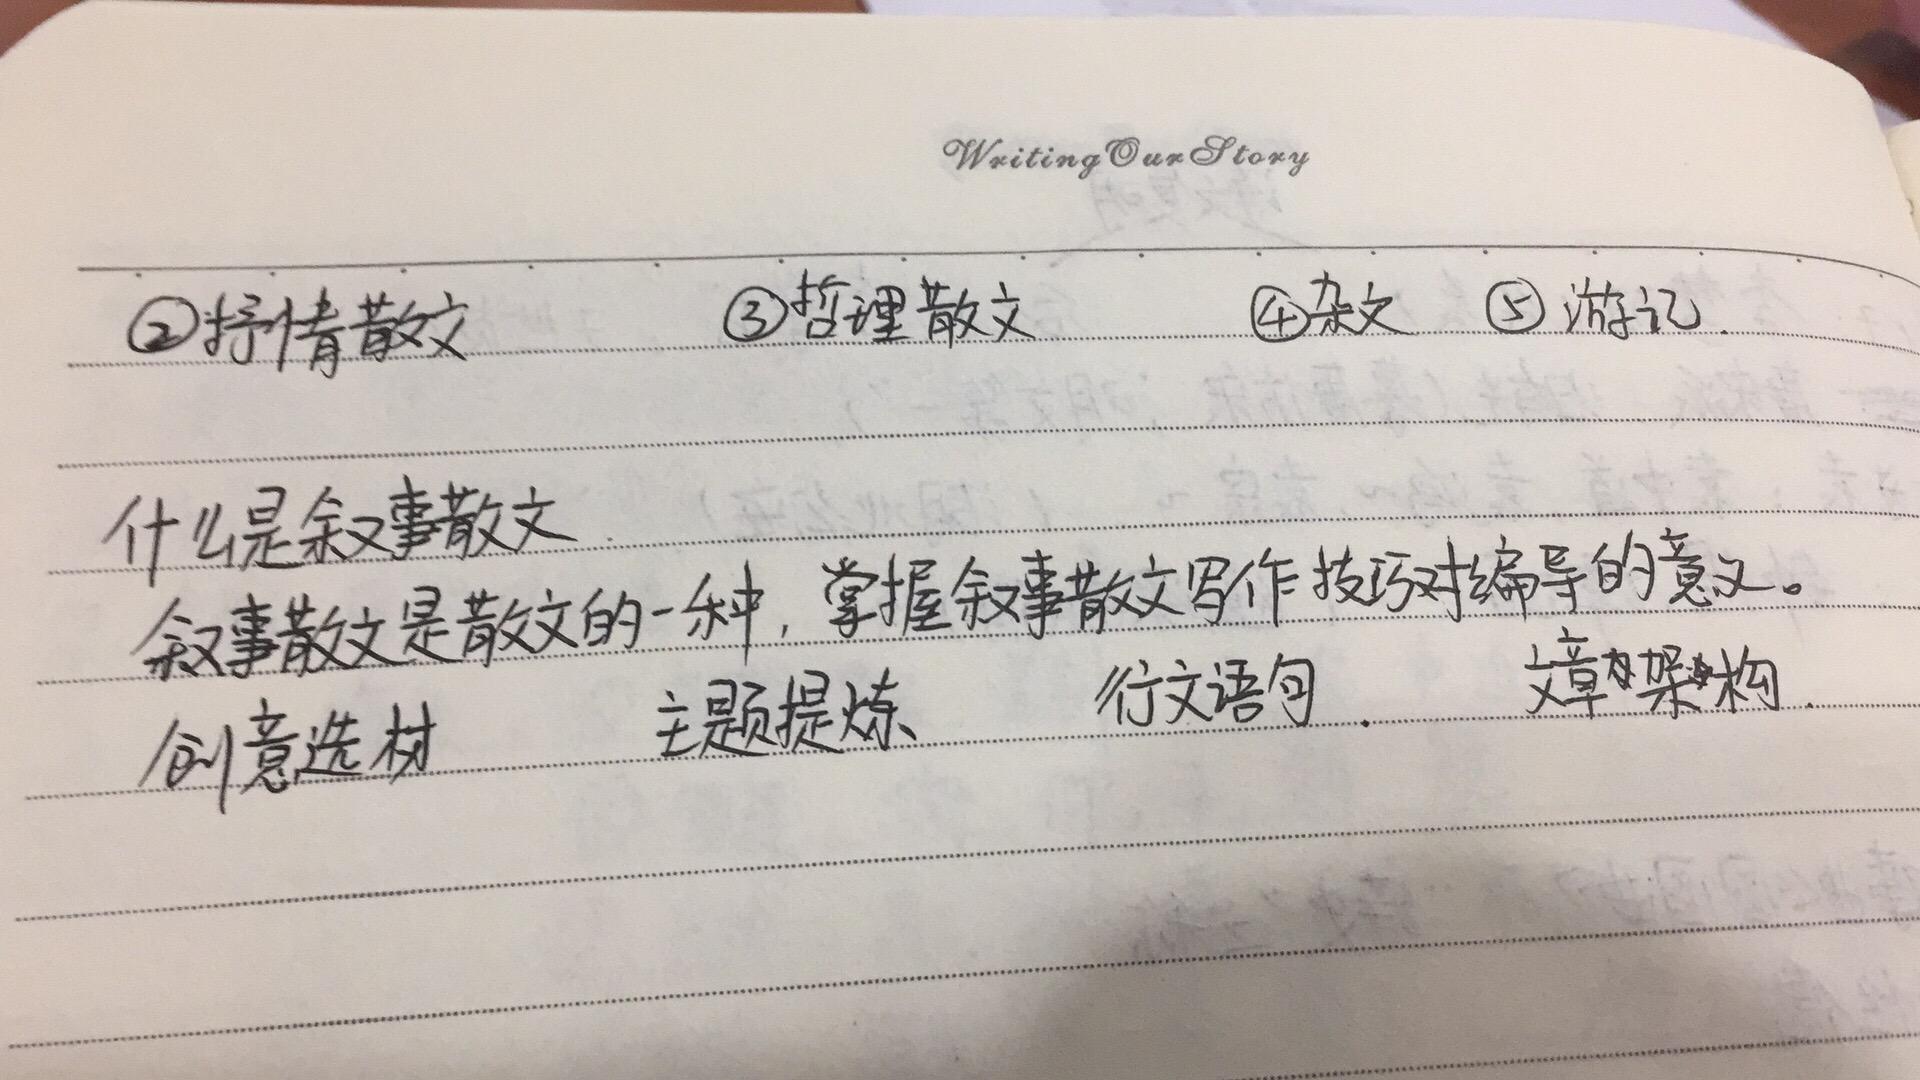 Writing Our Story
②抒情散文 ③哲理散文 ④杂文 ⑤游记.
什么是叙事散文.
叙事散文是散文的一种,掌握叙事散文写作技巧对编导的意义。
创意选材 主题提炼、 行文语句. 文章架构.